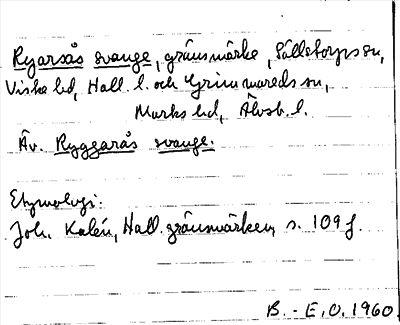 Ryarsås svange, gränsmärke, Sällstorps sn,
Viske hd, Hall. l. och Grimmareds sn,
Marks hd, Älvsb. l.
Äv. Ryggarås svange.
Etymologi:
Joh. Kalén, Hall. gränsmärken, s. 109 f.
B. - E. O. 1960